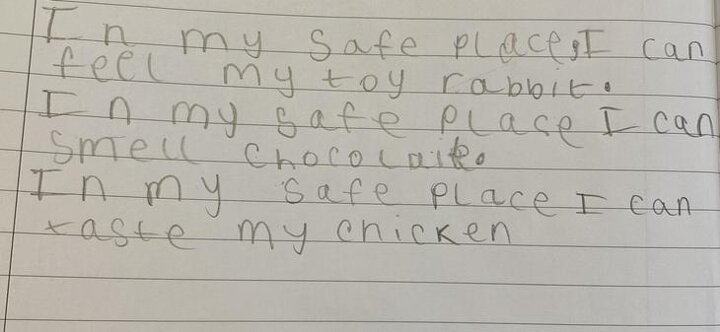 In my safe place, I can
feel my toy rabbit.
In my safe place I can
smell chocolate.
In my safe place I can
taste my chicken